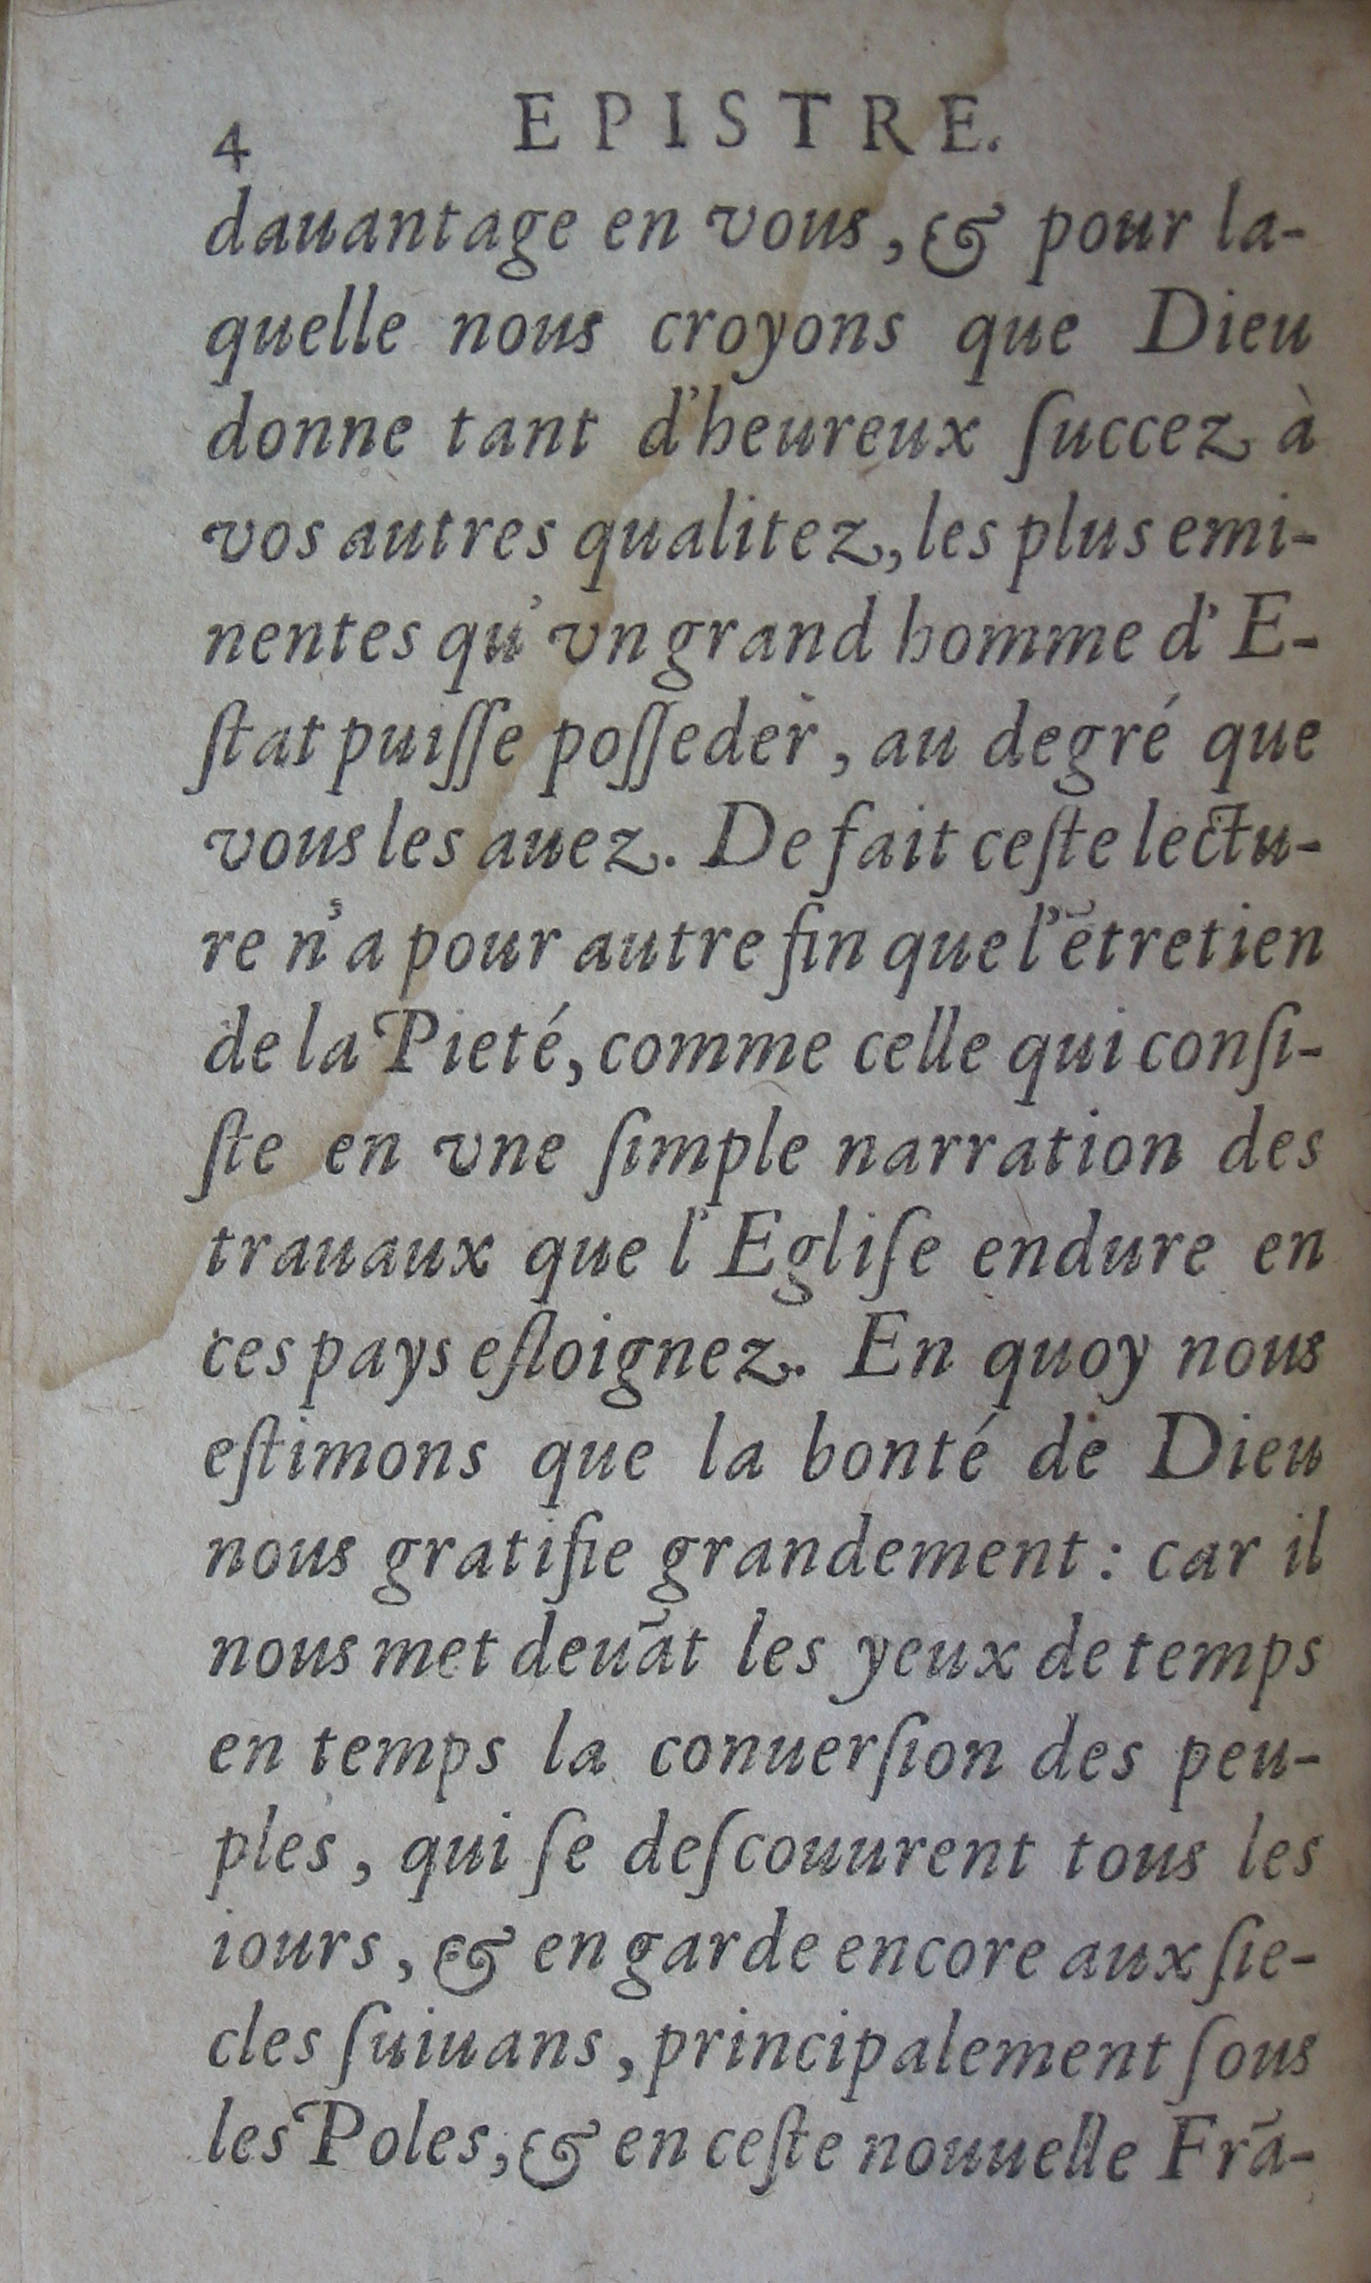 4 EPISTRE.
dauantage en vous, & pour la-
quelle nous croyons que Dieu
donne tant d'heureux ſuccez à
vos autres qualitez, les plus emi-
nentes qu'vn grand homme d'E-
ſtat puiſſe poſſeder, au degré que
vous les auez. De fait ceſte lectu-
re n'a pour autre fin que l'ētretien
de la Pieté, comme celle qui conſi-
ſte en vne ſimple narration des
trauaux que l'Egliſe endure en
ces pays eſloignez. En quoy nous
eſtimons que la bonté de Dieu
nous gratifie grandement : car il
nous met deuāt les yeux de temps
en temps la conuerſion des peu-
ples, qui ſe deſcouurent tous les
iours, & en garde encore aux ſie-
cles ſuiuans, principalement ſous
les Poles, & en ceſte nouuelle Frā-